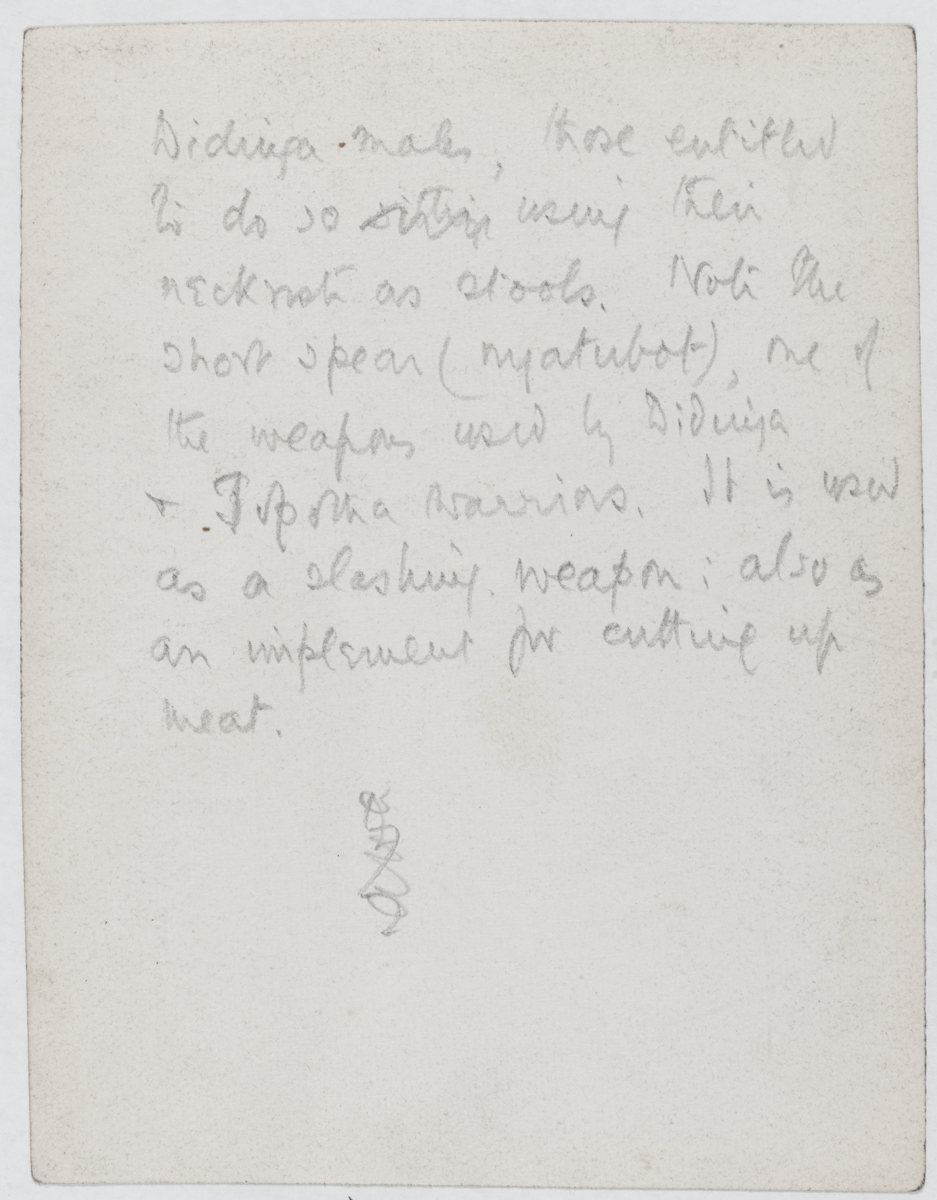 Didinga males, those entitled
to do so sitting using their
neckrests as stools. Note the
short spear (nyatubot), one of
the weapons used by Didinga
+ Topotha warriors. It is used
as a slashing weapon; also as
an implement for cutting up
meat.